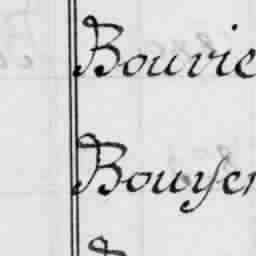 Bouvie
Bouyer